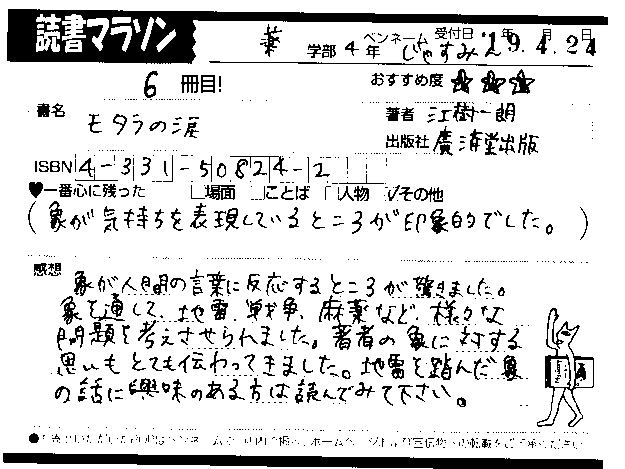 読書マラソン
薬 学部 4年 ペンネーム じゃすみん 受付日 '19.年4.月24日
6 冊目!
おすすめ度 ☆☆☆
書名 モタラの涙
著者 江樹一朗
出版社 廣済堂出版
ISBN 4-331-50824-2
♥一番心に残った □場面 □ことば □人物 ☑その他
(象が気持ちを表現しているところが印象的でした。)
感想
象が人間の言葉に反応するところが驚きました。
象を通して、地雷、戦争、麻薬など、様々な
問題を考えさせられました。著者の象に対する
思いもとても伝わってきました。地雷を踏んだ象
の話に興味のある方は読んでみて下さい。